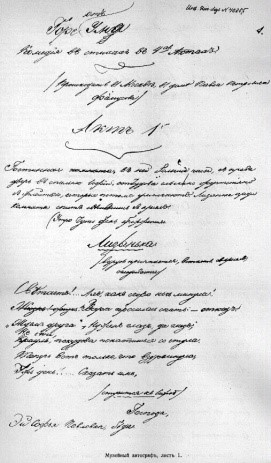 отъ
Горе Ума
1.
Комедія въ стихахъ въ 4хъ Актахъ
(Происходитъ въ Москвѣ, въ домѣ Павла Петровича
Фамусова)
Актъ 1й
Гостинная комната, въ ней большіе часы, справа
дверь въ спальню Софіи, откудова слышно фортопіано
съ флейтою, которыя потомъ умолкаютъ. Лизанька среди
комнаты спитъ, свѣсившись съ креселъ.
(Утро, чуть день брезжится)
Лизанька
(вдругъ просыпается, встаетъ съ креселъ,
оглядывается)
Свѣтаетъ!... Ахъ, какъ скоро ночь минула!
Вчера просилась спать – отказъ.
„Ждемъ друга“ – Нуженъ глазъ да глазъ;
Не спи, покудова скатишься со стула.
Теперь вотъ только что вздремнула,
Ужъ день!... Сказать имъ,
(стучится къ Софіи)
Господа,
Эй Софья Павловна, бѣда
Музейный автографъ, листъ 1.